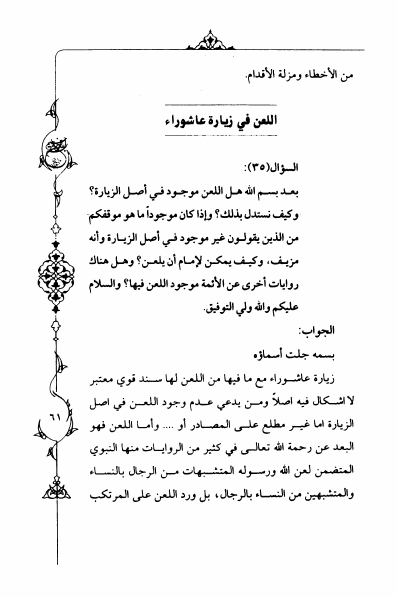 من الأخطاء ومزلة الأقدام.
اللعن في زيارة عاشوراء
السؤال(٣٥):
بعد بسم الله هل اللعن موجود في أصل الزيارة؟
وكيف نستدل بذلك؟ وإذا كان موجوداً ما هو موقفكم
من الذين يقولون غير موجود في أصل الزيارة وأنه
مزيف، وكيف يمكن لإمام أن يلعن؟ وهل هناك
روايات أخرى عن الأئمة موجود اللعن فيها؟ والسلام
عليكم والله ولي التوفيق.
الجواب:
بسمه جلت أسماؤه
زيارة عاشوراء مع ما فيها من اللعن لها سند قوي معتبر
لا اشكال فيه اصلاً ومن يدعي عدم وجود اللعن في اصل
الزيارة اما غير مطلع على المصادر أو .... وأما اللعن فهو
البعد عن رحمة الله تعالى في كثير من الروايات منها النبوي
المتضمن لعن الله ورسوله المتشبهات من الرجال بالنساء
والمتشبهين من النساء بالرجال، بل ورد اللعن على المرتكب
٦١